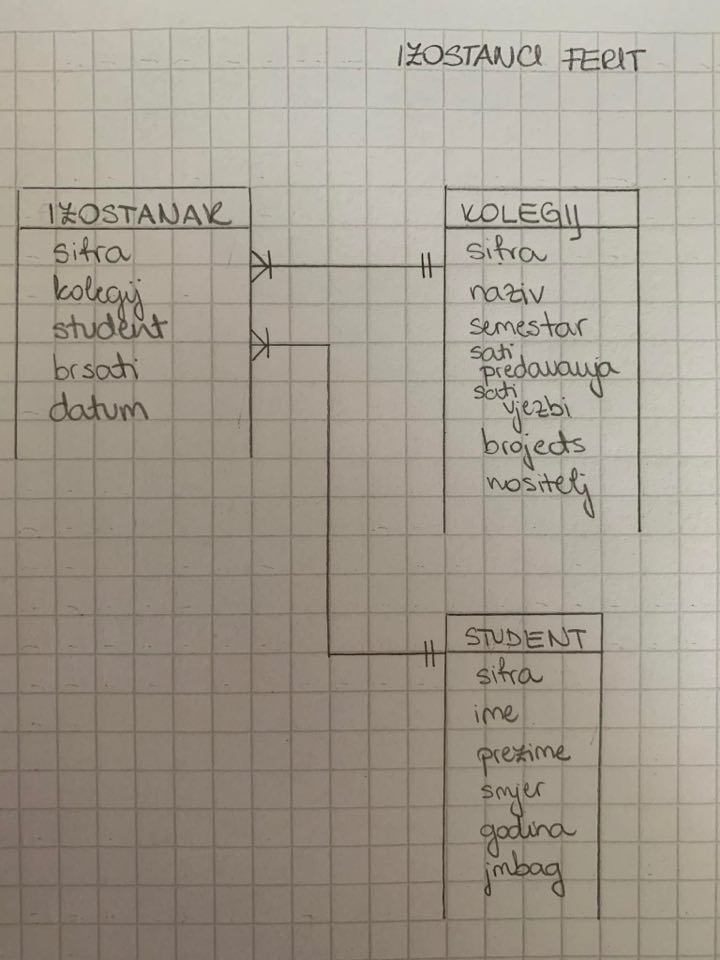 IZOSTANCI FERIT
IZOSTANAK
sifra
kolegij
student
brsati
datum
KOLEGIJ
sifra
naziv
semestar
sati
predavanja
sati
vjezbi
brojects
nositelj
STUDENT
sifra
ime
prezime
smjer
godina
jmbag